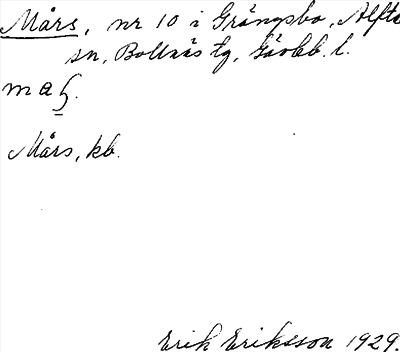 Mårs, nr 10 i Grängsbo, Alfta
sn, Bollnäs tg, Gävleb. l.
Mårs, kb.
Erik Eriksson 1929.